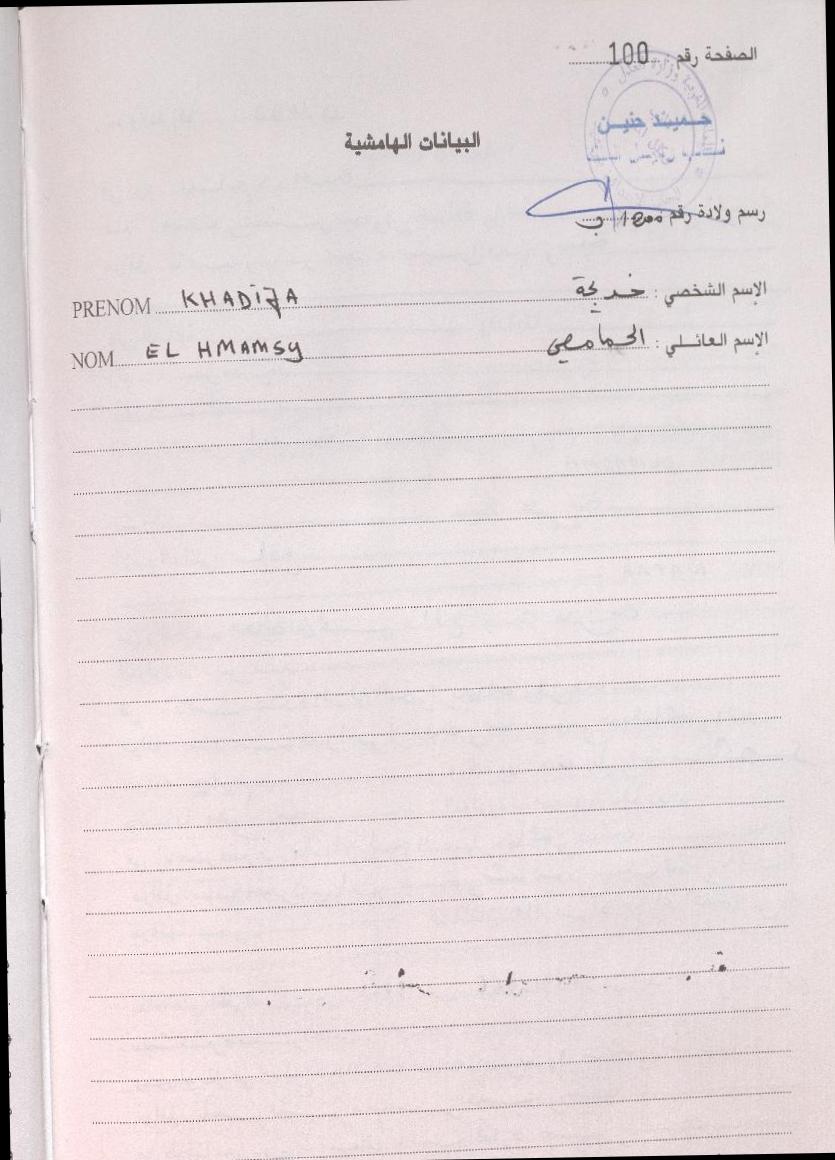 الصفحة رقم : 100
حميد حنين
البيانات الهامشية
رسم ولادة رقم 1200 ب
الإسم الشخصي : خديجة
PRENOM KHADIJA
الإسم العائلي : الحمامصي
NOM EL HMAMSY